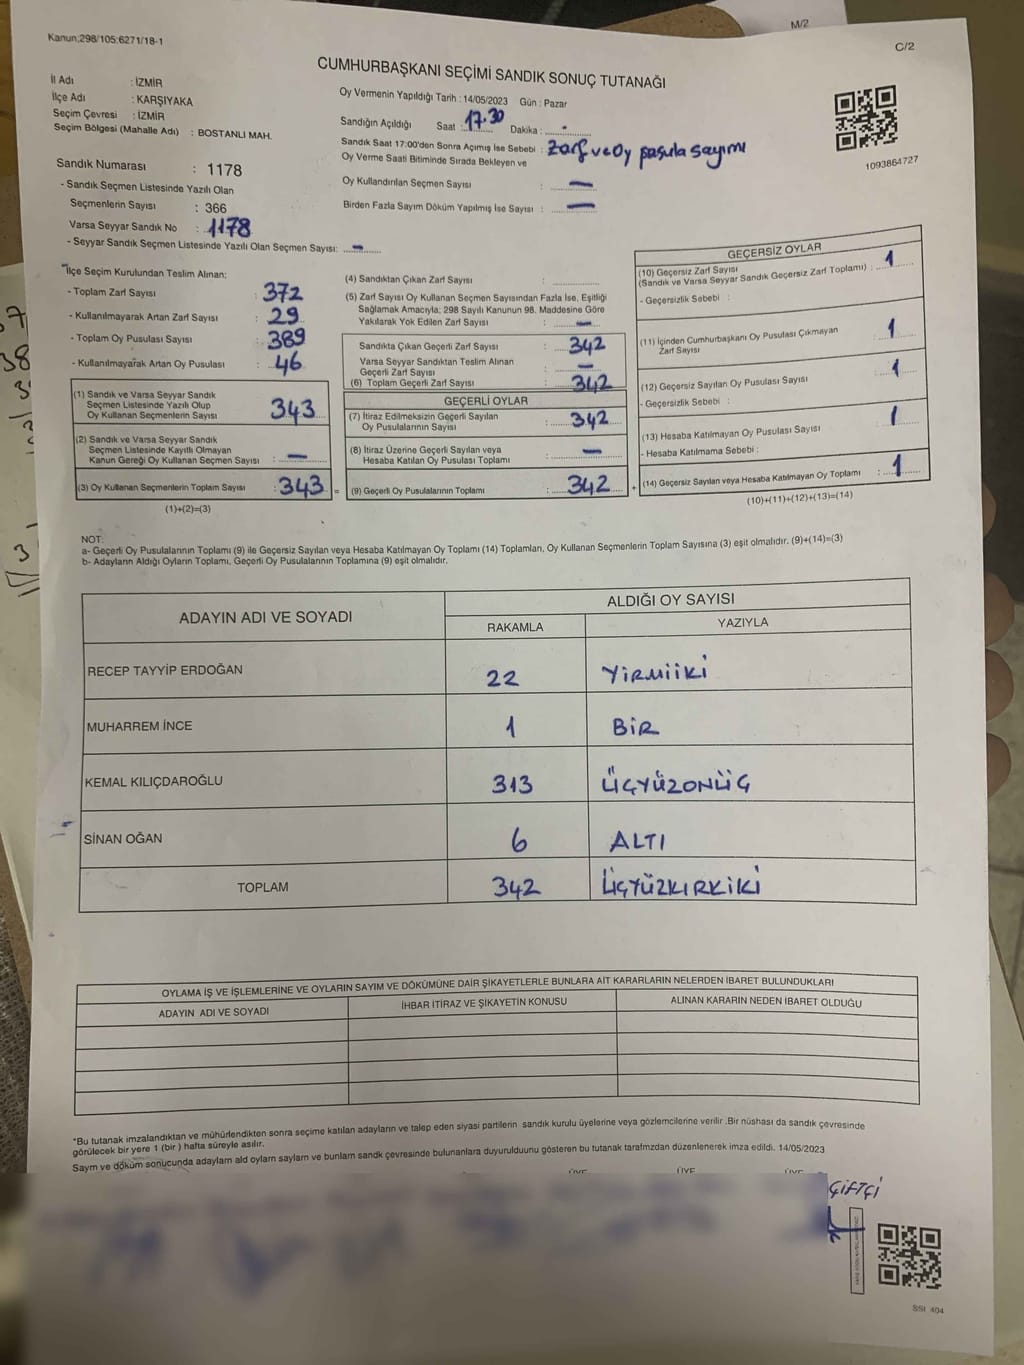 M/2
Kanun:298/105:6271/18-1
C/2
CUMHURBAŞKANI SEÇİMİ SANDIK SONUÇ TUTANAĞI
İl Adı : İZMİR
İlçe Adı : KARŞIYAKA
Seçim Çevresi : İZMİR
Seçim Bölgesi (Mahalle Adı) : BOSTANLI MAH.
Oy Vermenin Yapıldığı Tarih : 14/05/2023 Gün : Pazar
Sandığın Açıldığı Saat : 17.30 Dakika :
Sandık Saat 17:00'den Sonra Açımış İse Sebebi : Zarf ve Oy pusula sayımı
Oy Verme Saati Bitiminde Sırada Bekleyen ve
Oy Kullandırılan Seçmen Sayısı : —
Birden Fazla Sayım Döküm Yapılmış İse Sayısı : —
1093864727
Sandık Numarası : 1178
- Sandık Seçmen Listesinde Yazılı Olan
Seçmenlerin Sayısı : 366
Varsa Seyyar Sandık No : 1178
- Seyyar Sandık Seçmen Listesinde Yazılı Olan Seçmen Sayısı: —
İlçe Seçim Kurulundan Teslim Alınan:
- Toplam Zarf Sayısı : 372
- Kullanılmayarak Artan Zarf Sayısı : 29
- Toplam Oy Pusulası Sayısı : 389
- Kullanılmayarak Artan Oy Pusulası : 46
(1) Sandık ve Varsa Seyyar Sandık
Seçmen Listesinde Yazılı Olup
Oy Kullanan Seçmenlerin Sayısı : 343
(2) Sandık ve Varsa Seyyar Sandık
Seçmen Listesinde Kayıtlı Olmayan
Kanun Gereği Oy Kullanan Seçmen Sayısı : —
(3) Oy Kullanan Seçmenlerin Toplam Sayısı : 343 =
(1)+(2)=(3)
(4) Sandıktan Çıkan Zarf Sayısı :
(5) Zarf Sayısı Oy Kullanan Seçmen Sayısından Fazla İse, Eşitliği
Sağlamak Amacıyla; 298 Sayılı Kanunun 98. Maddesine Göre
Yakılarak Yok Edilen Zarf Sayısı : —
Sandıkta Çıkan Geçerli Zarf Sayısı : 342
Varsa Seyyar Sandıktan Teslim Alınan
Geçerli Zarf Sayısı : —
(6) Toplam Geçerli Zarf Sayısı : 342
GEÇERLİ OYLAR
(7) İtiraz Edilmeksizin Geçerli Sayılan
Oy Pusulalarının Sayısı : 342
(8) İtiraz Üzerine Geçerli Sayılan veya
Hesaba Katılan Oy Pusulası Toplamı : —
(9) Geçerli Oy Pusulalarının Toplamı : 342 +
GEÇERSİZ OYLAR
(10) Geçersiz Zarf Sayısı
(Sandık ve Varsa Seyyar Sandık Geçersiz Zarf Toplamı) : 1
- Geçersizlik Sebebi :
(11) İçinden Cumhurbaşkanı Oy Pusulası Çıkmayan
Zarf Sayısı : 1
(12) Geçersiz Sayılan Oy Pusulası Sayısı : 1
- Geçersizlik Sebebi :
(13) Hesaba Katılmayan Oy Pusulası Sayısı : 1
- Hesaba Katılmama Sebebi :
(14) Geçersiz Sayılan veya Hesaba Katılmayan Oy Toplamı : 1
(10)+(11)+(12)+(13)=(14)
NOT:
a- Geçerli Oy Pusulalarının Toplamı (9) ile Geçersiz Sayılan veya Hesaba Katılmayan Oy Toplamı (14) Toplamları, Oy Kullanan Seçmenlerin Toplam Sayısına (3) eşit olmalıdır. (9)+(14)=(3)
b- Adayların Aldığı Oyların Toplamı, Geçerli Oy Pusulalarının Toplamına (9) eşit olmalıdır.
ADAYIN ADI VE SOYADI ALDIĞI OY SAYISI
RAKAMLA YAZIYLA
RECEP TAYYİP ERDOĞAN 22 YİRMİİKİ
MUHARREM İNCE 1 BİR
KEMAL KILIÇDAROĞLU 313 ÜÇYÜZONÜÇ
SİNAN OĞAN 6 ALTI
TOPLAM 342 ÜÇYÜZKIRKİKİ
OYLAMA İŞ VE İŞLEMLERİNE VE OYLARIN SAYIM VE DÖKÜMÜNE DAİR ŞİKAYETLERLE BUNLARA AİT KARARLARIN NELERDEN İBARET BULUNDUKLARI
ADAYIN ADI VE SOYADI İHBAR İTİRAZ VE ŞİKAYETİN KONUSU ALINAN KARARIN NEDEN İBARET OLDUĞU
*Bu tutanak imzalandıktan ve mühürlendikten sonra seçime katılan adayların ve talep eden siyasi partilerin sandık kurulu üyelerine veya gözlemcilerine verilir .Bir nüshası da sandık çevresinde
görülecek bir yere 1 (bir ) hafta süreyle asılır.
Saym ve döküm sonucunda adaylarn ald oylarn saylarn ve bunlarn sandk çevresinde bulunanlara duyurulduunu gösteren bu tutanak tarafmzdan düzenlenerek imza edildi. 14/05/2023
ÜYE ÜYE ÜYE
ÇİFTÇİ
SSI 404